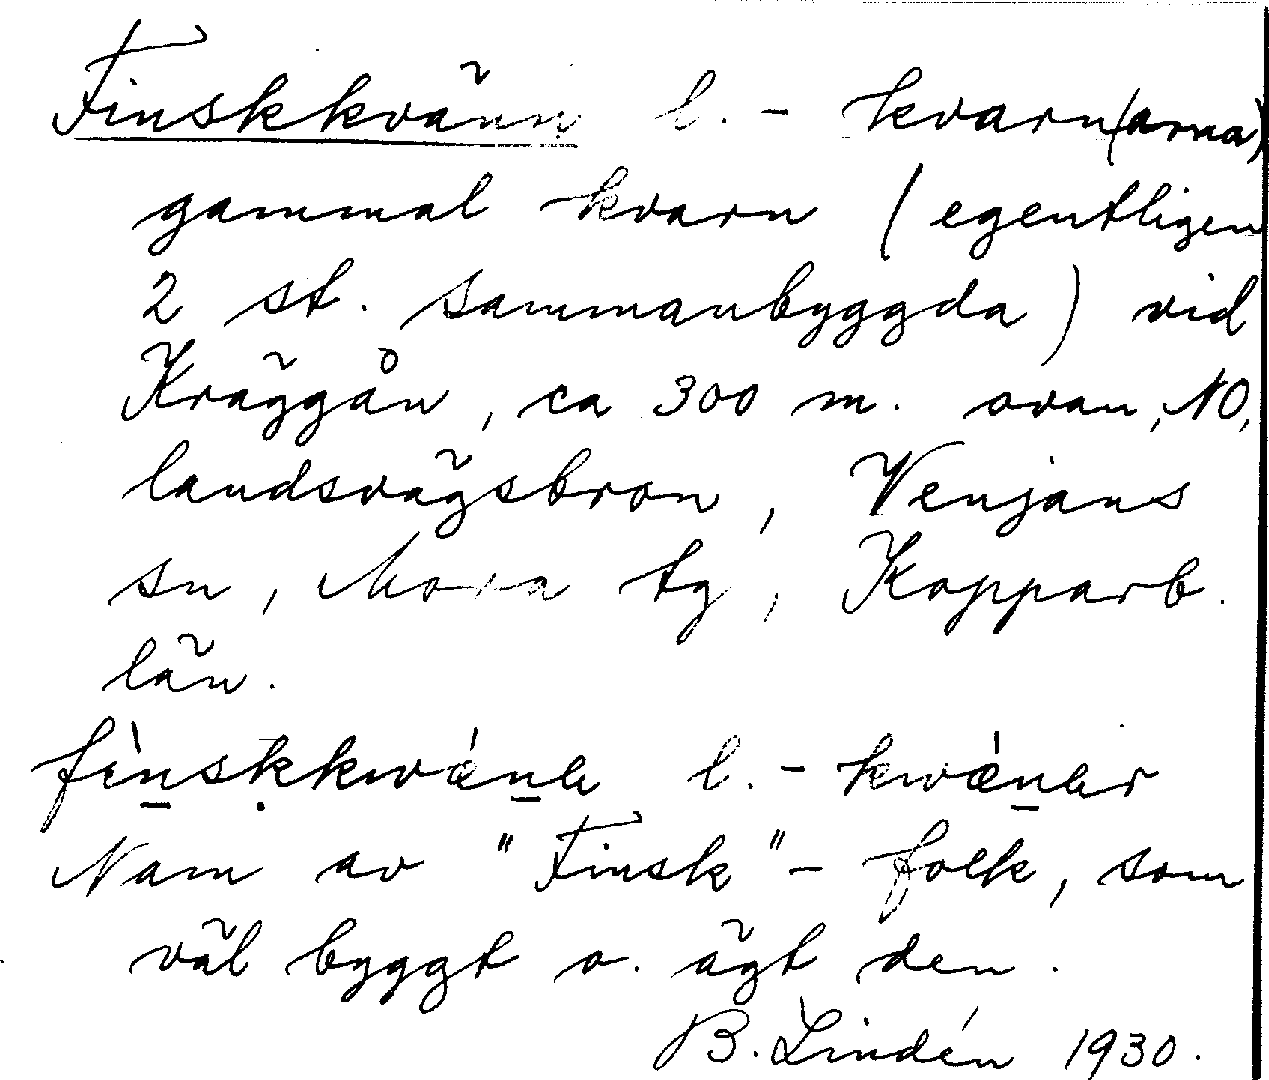 Finskkvänn l. - kvarn(arna)
gammal kvarn (egentligen
2 st. sammanbyggda) vid
Kräggån, ca 300 m. ovan, NO,
landsvägsbron, Venjans
sn, Mora tg, Kopparb.
län.
l. -
Namn av "Finsk"- folk, som
väl byggt o. ägt den.
B. Lindén 1930.